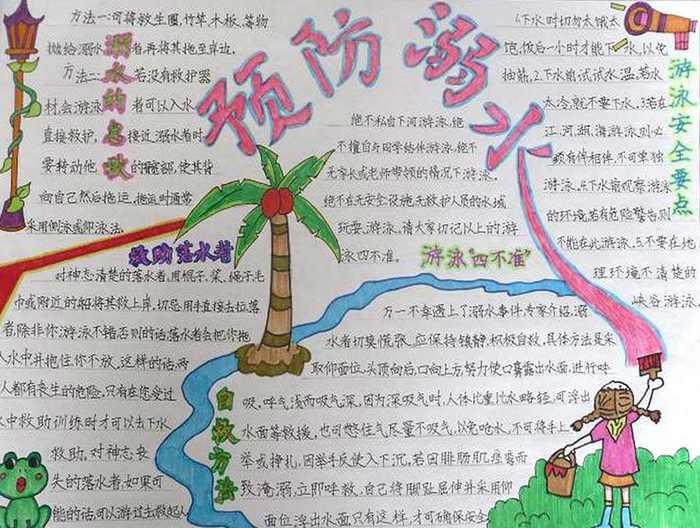 预防溺水
溺水的急救
方法一:可将救生圈、竹竿、木板、等物
抛给溺水者再将其拖至岸边,
方法二:若没有救护器
材会游泳者可以入水
直接救护,接近溺水者时
要转动他的髋部,使其背
向自己然后拖运,拖运时通常
采用侧泳或仰泳法.
救助落水者
对神志清楚的落水者,用棍子、桨、绳子毛
巾或附近的船将其救上岸,切忌用手直接去拉落
者,除非你游泳不错否则的话落水者会把你拖
入水中并抱住你不放,这样的话,两
人都有丧生的危险,只有在您受过
水中救助训练时才可以去下水
救助,对神志丧
失的落水者,如果可
能的话,可以游过去救起人
绝不私自下河游泳,绝
不擅自与同学结伴游泳,绝不
无家长或老师带领的情况下游泳,
绝不在无安全设施无救护人员的水域
玩耍、游泳,请大家切记以上的游
泳四不准.
游泳“四不准”
游泳安全要点
1.下水时切勿太饿太
饱,饭后一小时才能下水,以免
抽筋,2.下水前试试水温,若水
太冷,就不要下水,3.若在
江、河、湖、海游泳,则必
须有伴相伴,不可单独
游泳,4.下水前观察游泳
的环境,若有危险警告则
不能在此游泳,5.不要在地
理环境不清楚的
峡谷游泳,
自救方法
万一不幸遇上了溺水事件专家介绍,溺
水者切莫慌张,应保持镇静,积极自救,具体方法是采
取仰面位,头顶向后,口向上方努力使口鼻露出水面,进行呼
吸,呼气浅而吸气深,因为深吸气时,人体比重比水略轻,可浮出
水面等救援,也可憋住气尽量不吸气,以免呛水,不可将手上
举或挣扎,因举手反使人下沉,若因腓肠肌痉挛而
致淹溺,立即呼救,自己将脚趾屈伸并采用仰
面位浮出水面,只有这样,才可确保安全